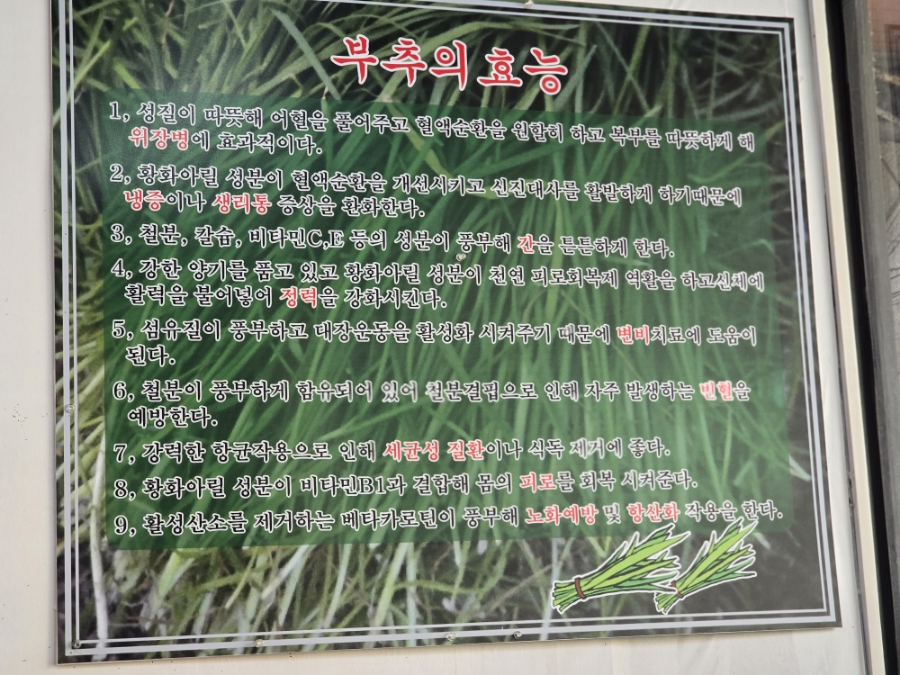 부추의 효능
1, 성질이 따뜻해 어혈을 풀어주고 혈액순환을 원할히 하고 복부를 따뜻하게 해
위장병에 효과적이다.
2, 황화아릴 성분이 혈액순환을 개선시키고 신진대사를 활발하게 하기때문에
냉증이나 생리통 증상을 완화한다.
3, 철분, 칼슘, 비타민C,E 등의 성분이 풍부해 간을 튼튼하게 한다.
4, 강한 양기를 품고 있고 황화아릴 성분이 천연 피로회복제 역활을 하고신체에
활력을 불어넣어 정력을 강화시킨다.
5, 섬유질이 풍부하고 대장운동을 활성화 시켜주기 때문에 변비치료에 도움이
된다.
6, 철분이 풍부하게 함유되어 있어 철분결핍으로 인해 자주 발생하는 빈혈을
예방한다.
7, 강력한 항균작용으로 인해 세균성 질환이나 식독 제거에 좋다.
8, 황화아릴 성분이 비타민B1과 결합해 몸의 피로를 회복 시켜준다.
9, 활성산소를 제거하는 베타카로틴이 풍부해 노화예방 및 항산화 작용을 한다.